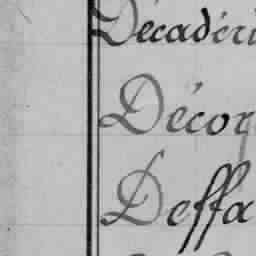 Décadéri
Décor
Deffa